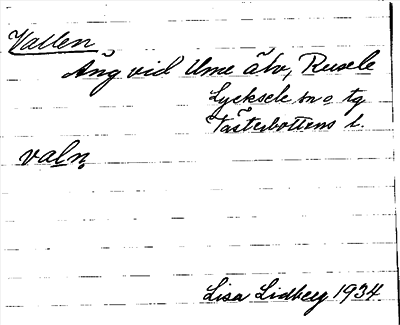 Vallen
Äng vid Ume älv, Rusele
Lycksele sn o. tg
Västerbottens l.
valn̥
Lisa Lidberg 1934.